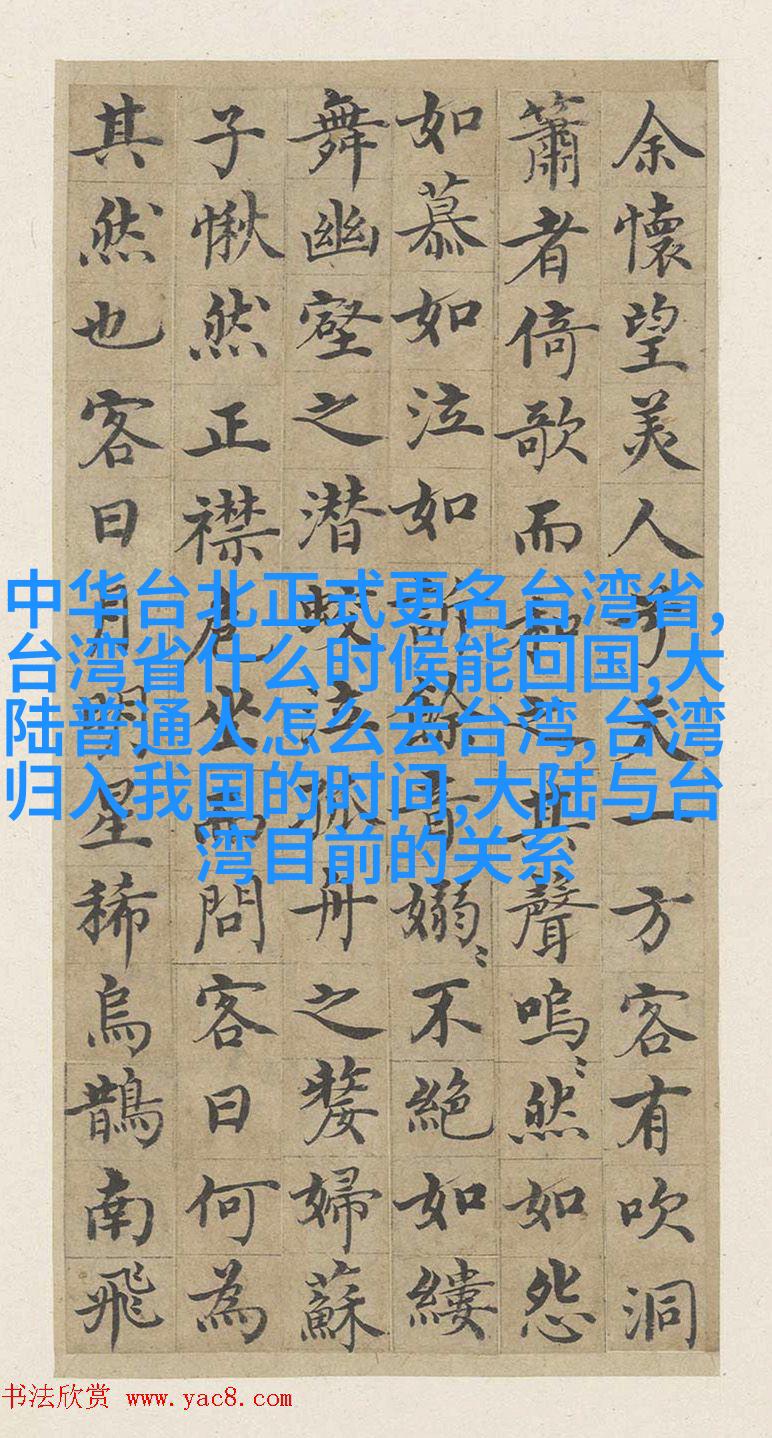 余懷望美人兮天一方客有吹洞
簫者倚歌而和之其聲嗚〻然如怨
如慕如泣如訴餘音嫋〻不絕如縷
舞幽壑之潜蛟泣孤舟之嫠婦蘇
子愀然正襟危坐而問客曰何為
其然也客曰月明星稀烏鵲南飛
中华台北正式更名台湾省,
台湾省什么时候能回国,大
陆普通人怎么去台湾,台湾
归入我国的时间,大陆与台
湾目前的关系
书法欣赏 www.yac8.com